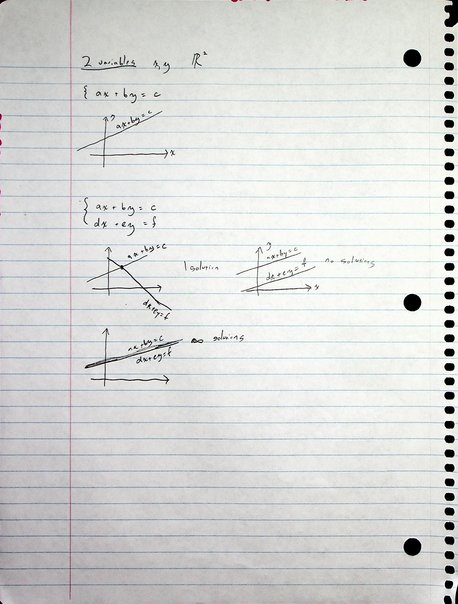 2 variables x, y ℝ²
{ ax + by = c
y
ax+by=c
x
{ ax + by = c
dx + ey = f
ax+by=c
1 solution
dx+ey=f
y
ax+by=c
dx+ey=f
no solutions
x
ax+by=c
dx+ey=f
∞ solutions